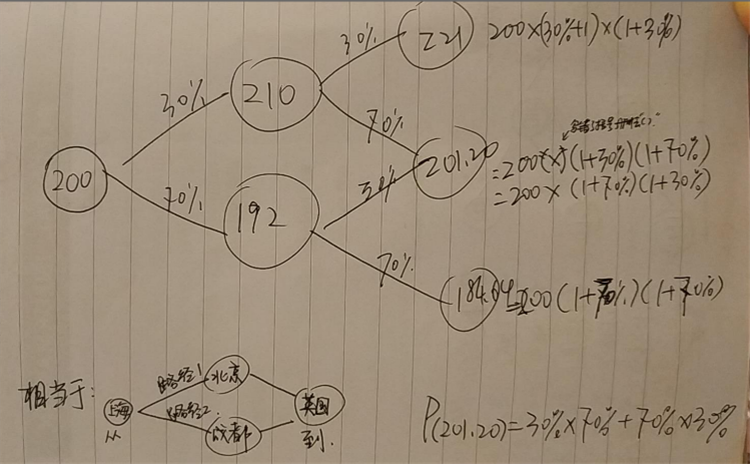 30% 221 200×(30%+1)×(1+30%)
30% 210
70%
200 201.20 =200(×)(1+30%)(1+70%)
=200×(1+70%)(1+30%)
70% 192 30%
70%
184.04 =200(1+70%)(1+70%)
相当于: 上海 路径1 北京 英国
从 路径2 成都 到.
P(201.20)=30%×70%+70%×30%